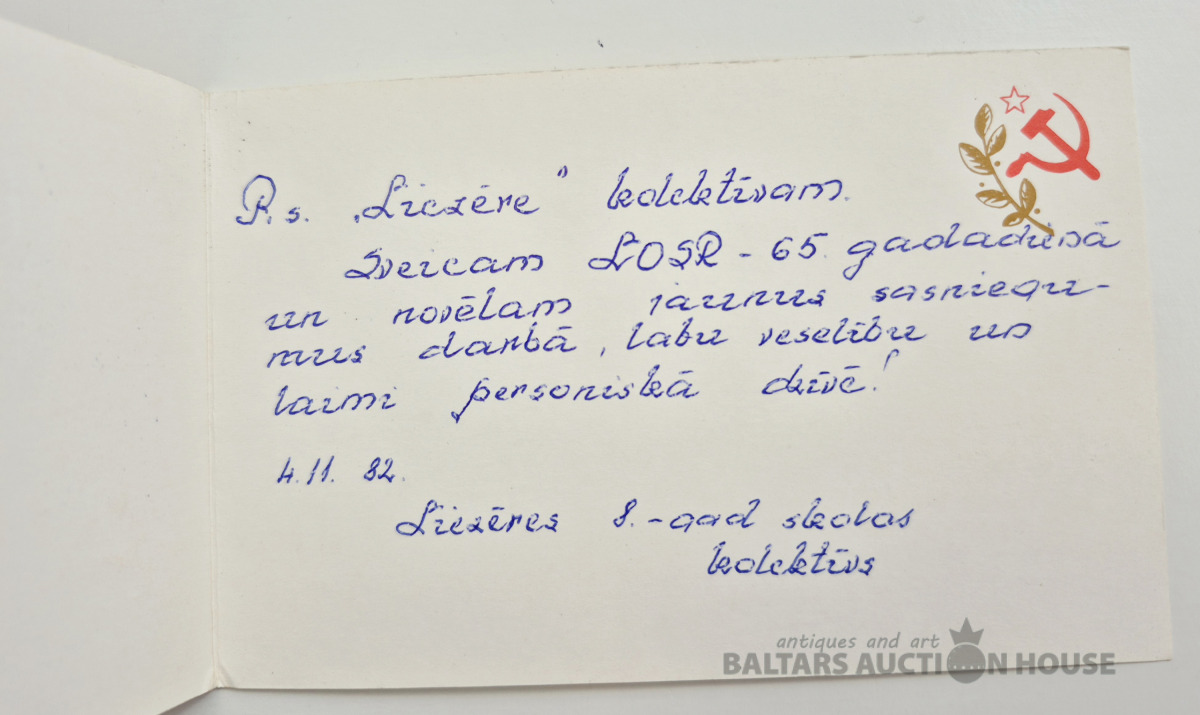 P.s. „Liezēre" kolektīvam.
Sveicam LOSR - 65. gadadienā
un novēlam jaunus sasniegu-
mus darbā, labu veselību un
laimi personiskā dzīvē!
4.11. 82.
Liezēres 8.-gad skolas
kolektīvs
antiques and art
BALTARS AUCTION HOUSE